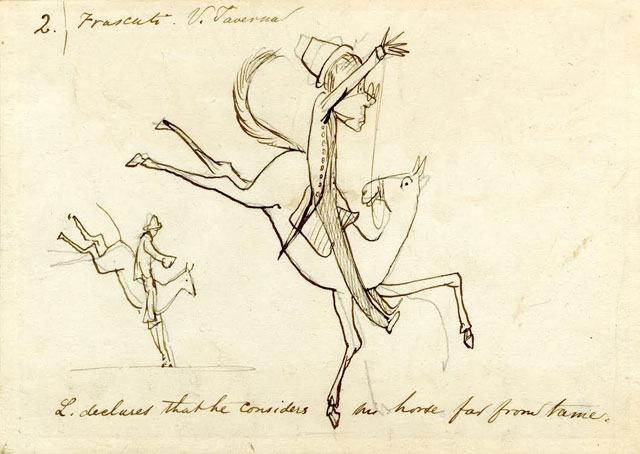 2. Frascati. V. Taverna
L. declares that he considers his horse far from tame.